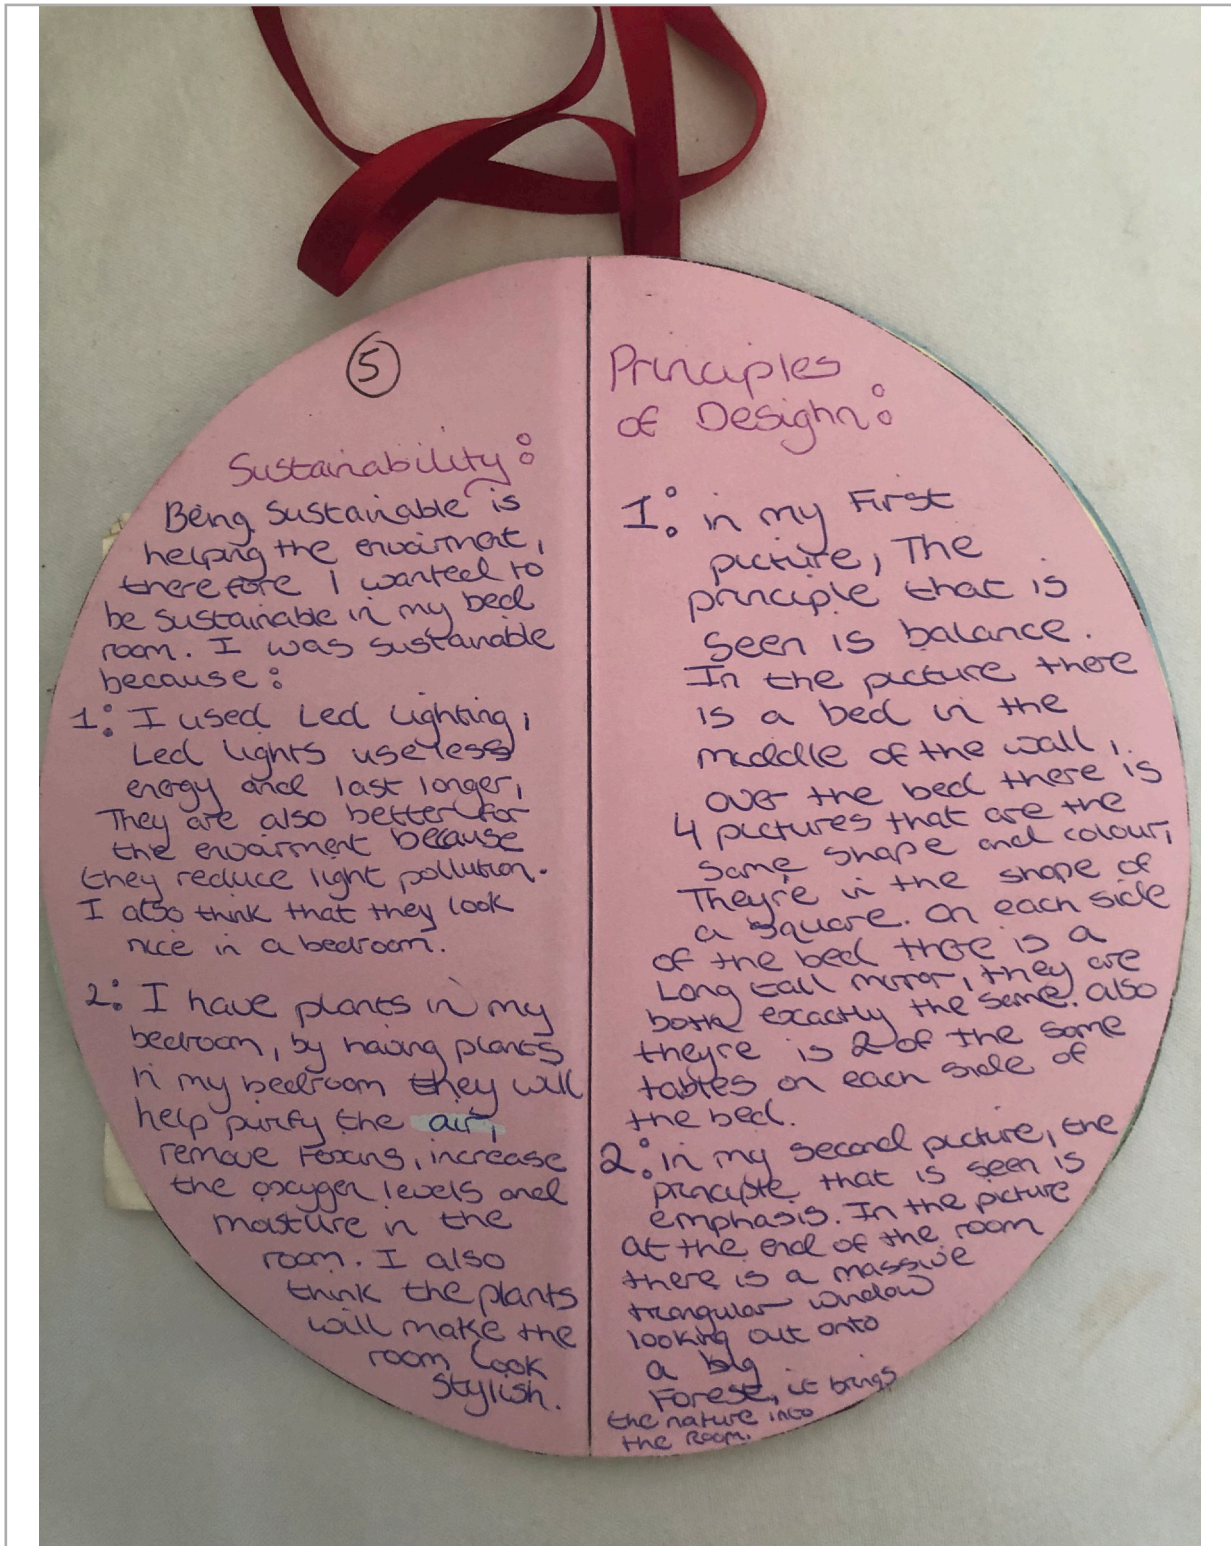 5
Sustainability:
Being sustainable is
helping the enviorment,
therefore I wanted to
be sustainable in my bed
room. I was sustainable
because:
1: I used Led Lighting,
Led Lights use less
energy and last longer,
They are also better for
the enviorment because
they reduce light pollution.
I also think that they look
nice in a bedroom.
2: I have plants in my
bedroom, by having plants
in my bedroom they will
help purify the air,
remove Toxins, increase
the oxygen levels and
moisture in the
room. I also
think the plants
will make the
room look
stylish.
Principles
of Desighn:
1: in my First
picture, The
principle that is
seen is balance.
In the picture there
is a bed in the
middle of the wall,
over the bed there is
4 pictures that are the
same shape and colour,
They're in the shape of
a square. On each side
of the bed there is a
Long tall mirror, they are
both exactly the same. also
theyre is 2 of the same
tables on each side of
the bed.
2: in my second picture, the
principle that is seen is
emphasis. In the picture
at the end of the room
there is a massive
triangular window
looking out onto
a big
Forest, it brings
the nature into
the Room.